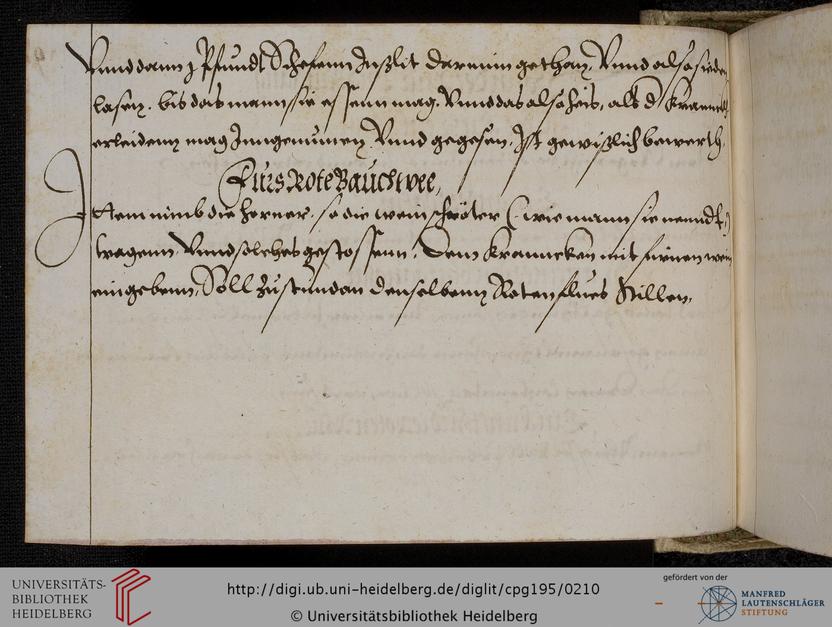 Vnnd dann j Pfundt Schefenn Jnßlit dareinn gethan, Vnnd also sieden
lasen, bis das mann sie essenn mag, Vnnd das also heis, als d Kranneckh
erleidenn mag Jnngenumen, Vnnd gegesen, Jst gewißlich bewerth,
Fürs Rote Bauchwee,
Jttem nimb die herner, so die weinschröter (wie mann sie nenndt,)
tragenn, Vnnd solches gestossenn, Dem Kranneken mit firnen wein
eingebenn, Soll zustundan denselbenn Roten flues stillen,
UNIVERSITÄTS-
BIBLIOTHEK
HEIDELBERG
http://digi.ub.uni-heidelberg.de/diglit/cpg195/0210
© Universitätsbibliothek Heidelberg
gefördert von der
MANFRED
LAUTENSCHLÄGER
STIFTUNG